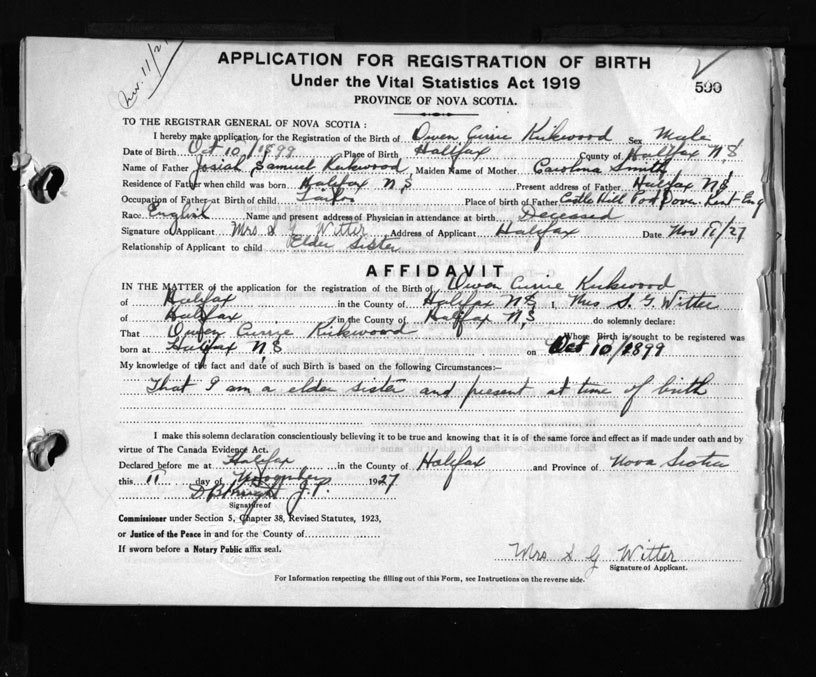 Nov. 11/27
APPLICATION FOR REGISTRATION OF BIRTH
Under the Vital Statistics Act 1919
590
PROVINCE OF NOVA SCOTIA.
TO THE REGISTRAR GENERAL OF NOVA SCOTIA :
I hereby make application for the Registration of the Birth of Owen Currie Kirkwood Sex Male
Date of Birth Oct 10/1899 Place of Birth Halifax County of Halifax N.S
Name of Father Josiah Samuel Kirkwood Maiden Name of Mother Carolina Smith
Residence of Father when child was born Halifax N.S Present address of Father Halifax N.S
Occupation of Father at Birth of child Tailor Place of birth of Father Castle Hill Dover Kent Eng
Race English Name and present address of Physician in attendance at birth Deceased
Signature of Applicant Mrs S G Witter Address of Applicant Halifax Date Nov /27
Relationship of Applicant to child Elder Sister
AFFIDAVIT
IN THE MATTER of the application for the registration of the Birth of Owen Currie Kirkwood
of Halifax in the County of Halifax N.S I, Mrs S. G. Witter
of Halifax in the County of Halifax N.S do solemnly declare:
That Owen Currie Kirkwood Whose Birth is sought to be registered was
born at Halifax N.S on Oct 10/1899
My knowledge of the fact and date of such Birth is based on the following Circumstances:—
That I am a elder sister and present at time of birth
I make this solemn declaration conscientiously believing it to be true and knowing that it is of the same force and effect as if made under oath and by
virtue of The Canada Evidence Act.
Declared before me at Halifax in the County of Halifax and Province of Nova Scotia
this 11 day of November 1927
J.P.
Signature of
Commissioner under Section 5, Chapter 38, Revised Statutes, 1923,
or Justice of the Peace in and for the County of
If sworn before a Notary Public affix seal.
Mrs S G Witter
Signature of Applicant.
For Information respecting the filling out of this Form, see Instructions on the reverse side.